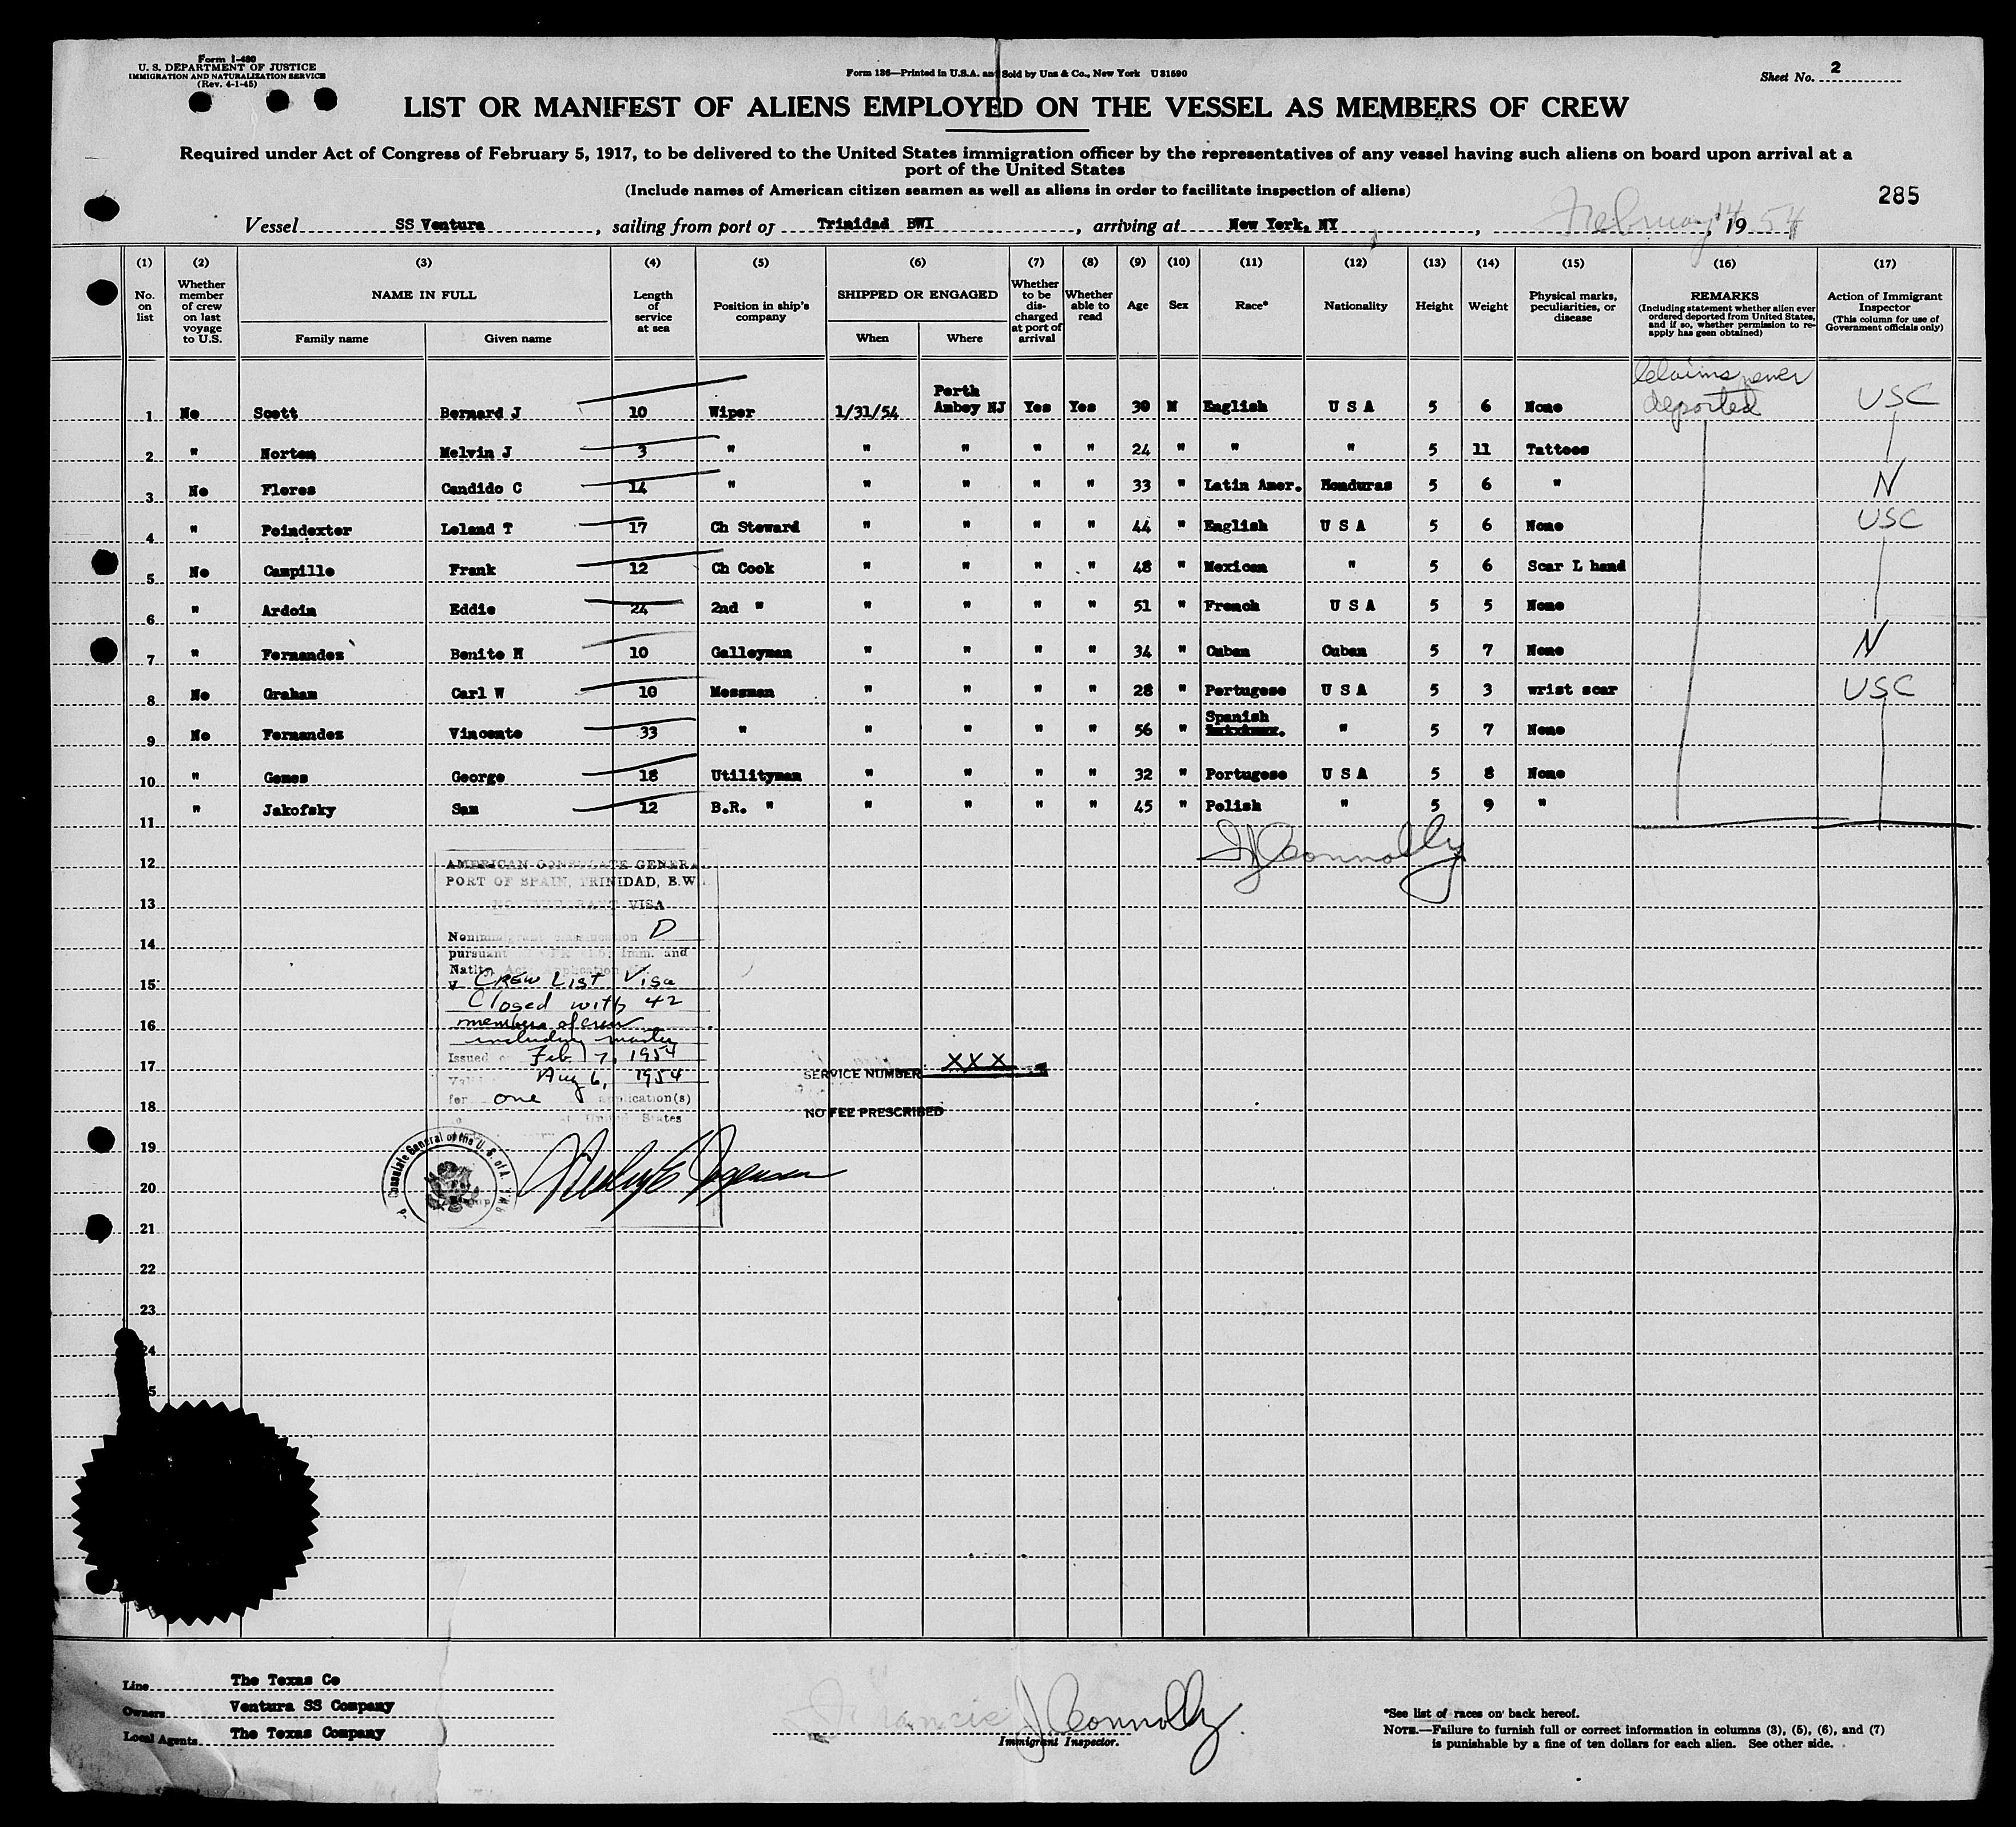 Form I-480
U. S. DEPARTMENT OF JUSTICE
IMMIGRATION AND NATURALIZATION SERVICE
(Rev. 4-1-45)
Form 136—Printed in U.S.A. and Sold by Unz & Co., New York U 31590
Sheet No. 2
LIST OR MANIFEST OF ALIENS EMPLOYED ON THE VESSEL AS MEMBERS OF CREW
Required under Act of Congress of February 5, 1917, to be delivered to the United States immigration officer by the representatives of any vessel having such aliens on board upon arrival at a
port of the United States
(Include names of American citizen seamen as well as aliens in order to facilitate inspection of aliens)
285
Vessel SS Ventura, sailing from port of Trinidad BWI, arriving at New York, NY, February 14, 1954
(1) No. on list
(2) Whether member of crew on last voyage to U.S.
(3) NAME IN FULL Family name Given name
(4) Length of service at sea
(5) Position in ship's company
(6) SHIPPED OR ENGAGED When Where
(7) Whether to be discharged at port of arrival
(8) Whether able to read
(9) Age
(10) Sex
(11) Race*
(12) Nationality
(13) Height
(14) Weight
(15) Physical marks, peculiarities, or disease
(16) REMARKS (Including statement whether alien ever ordered deported from United States, and if so, whether permission to re-apply has been obtained)
(17) Action of Immigrant Inspector (This column for use of Government officials only)
1 No Scott Bernard J 10 Wiper 1/31/54 Perth Amboy NJ Yes Yes 30 M English U S A 5 6 None Claims never deported USC
2 " Norton Melvin J 3 " " " " " 24 " " " 5 11 Tattoos
3 No Flores Candido C 14 " " " " " 33 " Latin Amer. Honduras 5 6 " N
4 " Poindexter Leland T 17 Ch Steward " " " " 44 " English U S A 5 6 None USC
5 No Campillo Frank 12 Ch Cook " " " " 48 " Mexican " 5 6 Scar L hand
6 " Ardoin Eddie 24 2nd " " " " " 51 " French U S A 5 5 None
7 " Fernandez Benito M 10 Galleyman " " " " 34 " Cuban Cuban 5 7 None N
8 No Graham Carl W 10 Messman " " " " 28 " Portugese U S A 5 3 wrist scar USC
9 No Fernandez Vincente 33 " " " " " 56 " Spanish " 5 7 None
10 " Gomes George 18 Utilityman " " " " 32 " Portugese U S A 5 8 None
11 " Jakofsky Sam 12 B.R. " " " " " 45 " Polish " 5 9 "
FJConnolly
12
13
14
15
16
17
18
19
20
21
22
23
24
5
AMERICAN CONSULATE GENERAL
PORT OF SPAIN, TRINIDAD, B.W.
NONIMMIGRANT VISA
Nonimmigrant classification D
pursuant Imm. and
Natlty. Act, Application No.
V Crew List Visa
Closed with 42
members of crew
including master
Issued on Feb 7, 1954
Aug 6, 1954
for one application(s)
at United States
SERVICE NUMBER XXX
NO FEE PRESCRIBED
Consulate General of the U. S. of A.
Line The Texas Co
Owners Ventura SS Company
Local Agents The Texas Company
Francis J Connolly
Immigrant Inspector.
*See list of races on back hereof.
NOTE.—Failure to furnish full or correct information in columns (3), (5), (6), and (7)
is punishable by a fine of ten dollars for each alien. See other side.